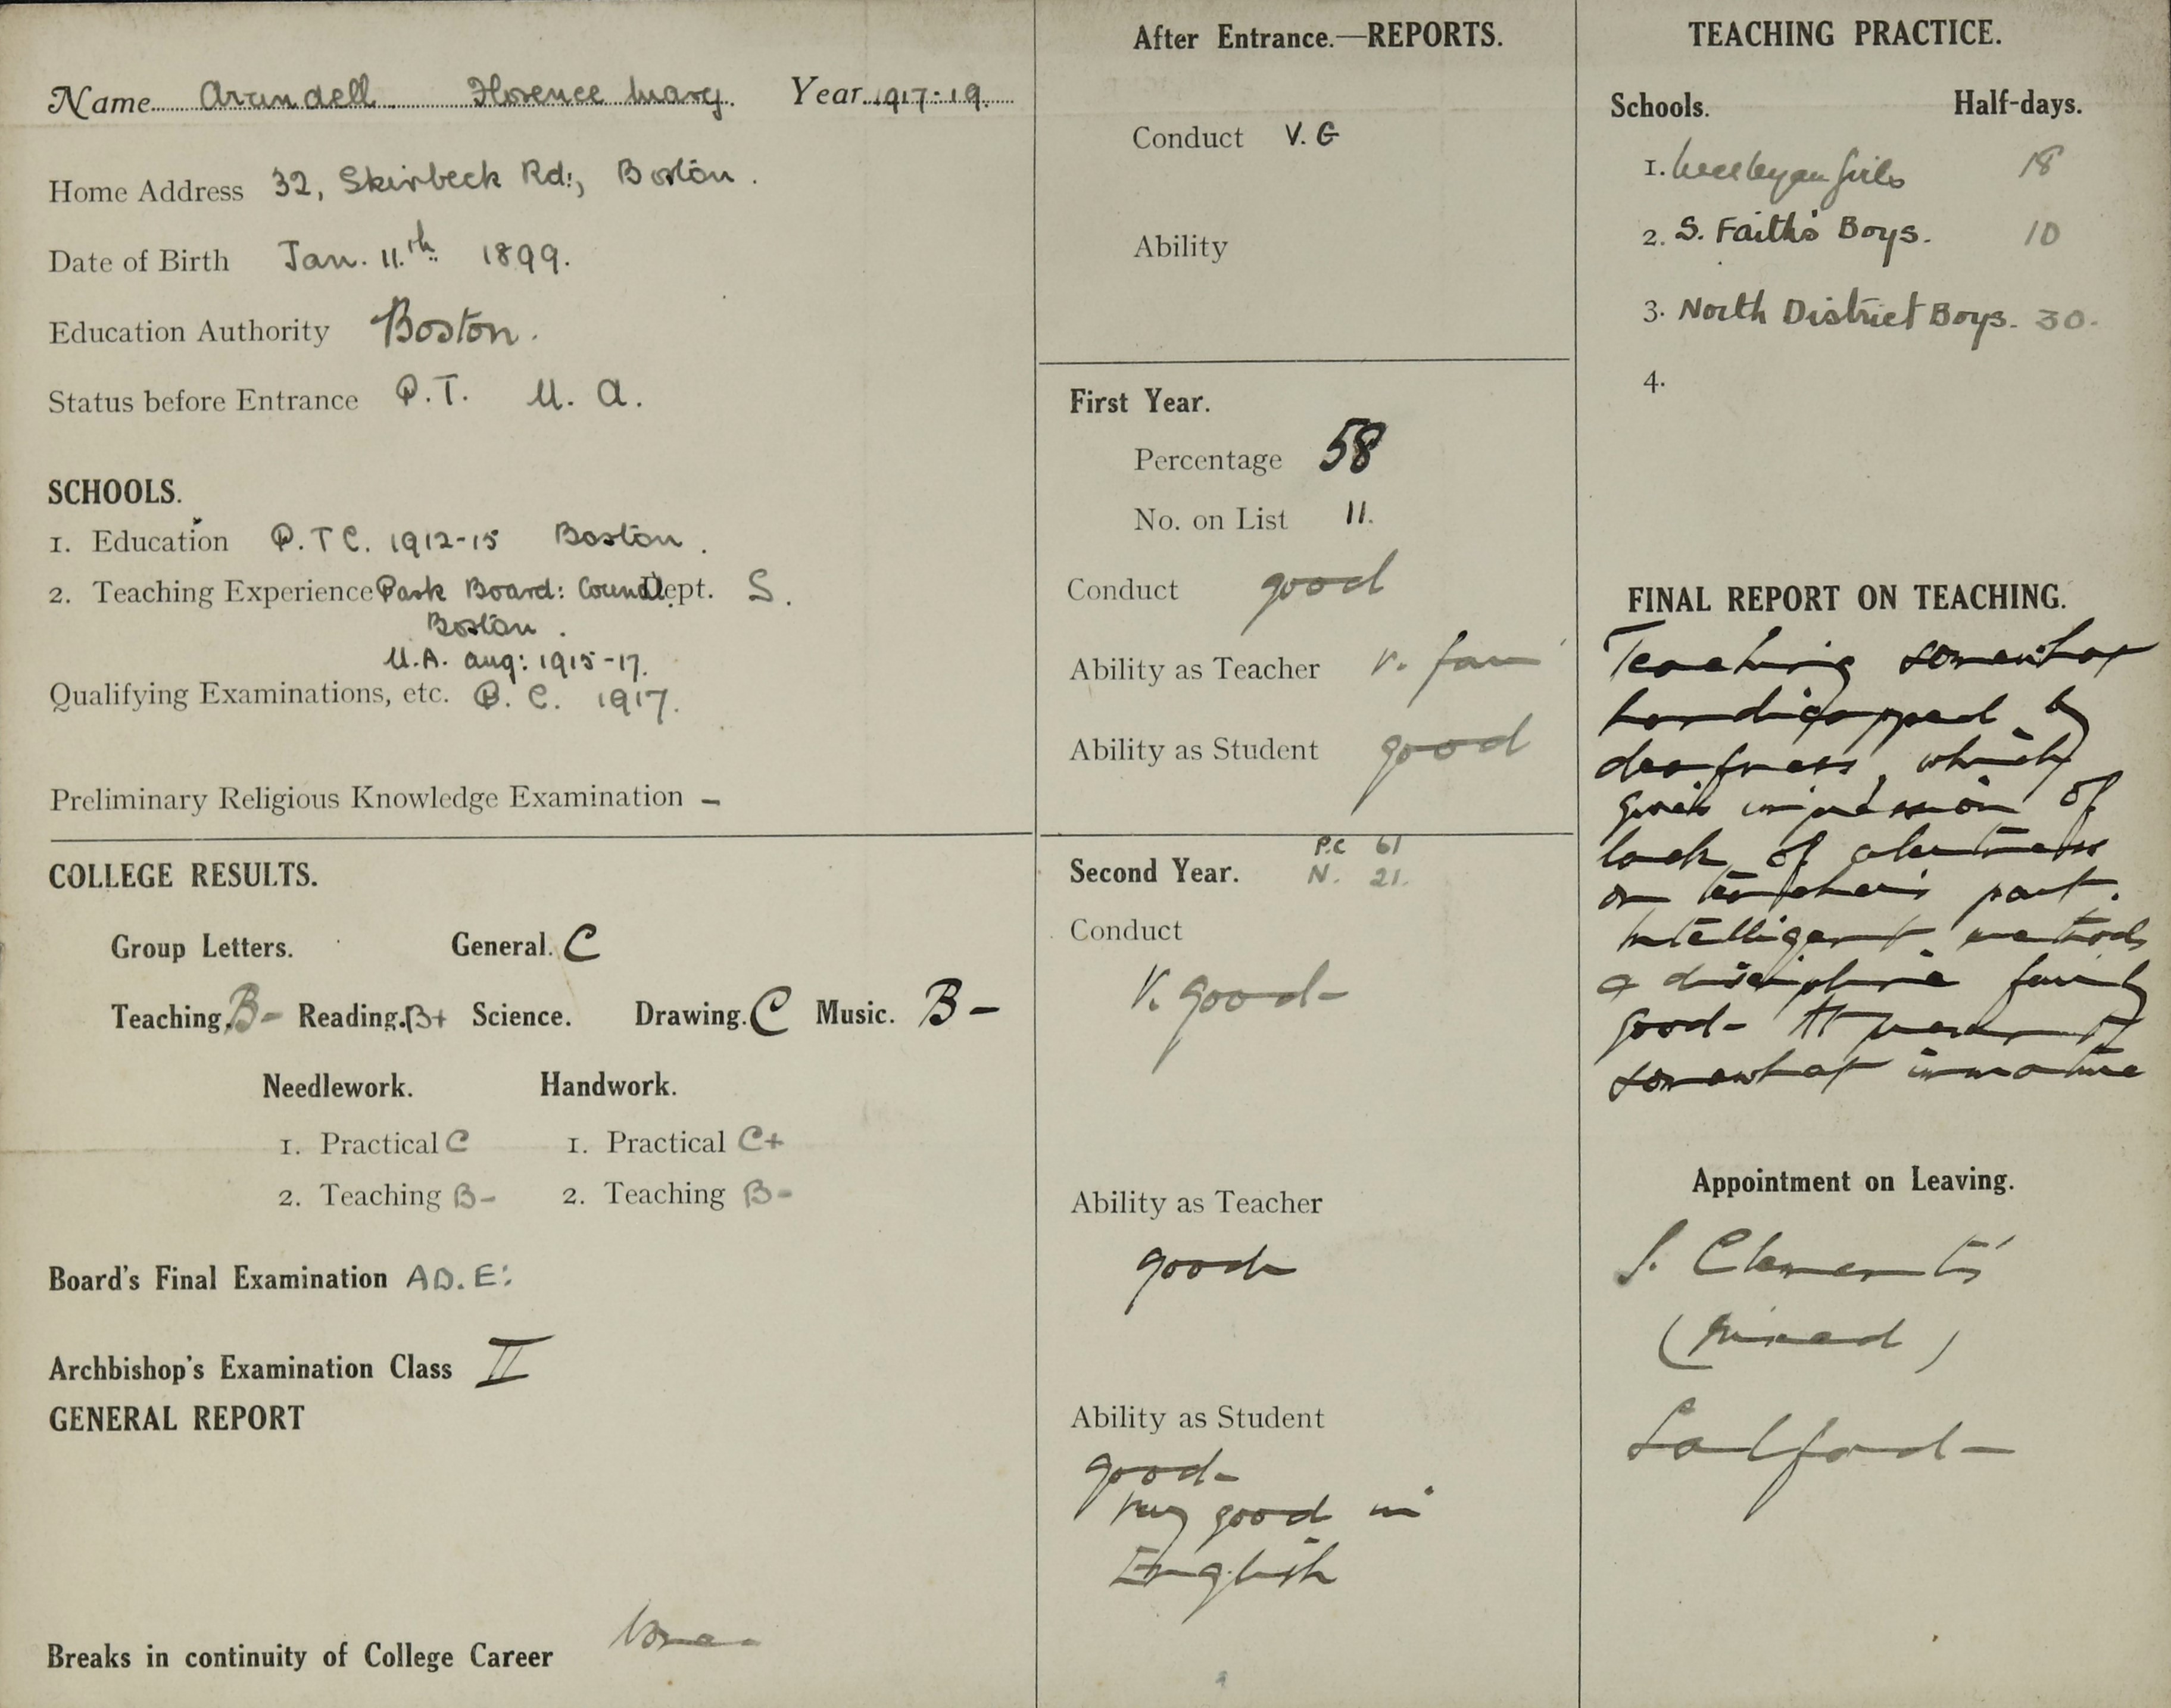 Name Arundell Florence Mary. Year 1917-19.
Home Address 32, Skirbeck Rd:, Boston.
Date of Birth Jan. 11.th 1899.
Education Authority Boston.
Status before Entrance P.T. U. A.
SCHOOLS.
1. Education P.T C. 1912-15 Boston.
2. Teaching Experience Park Board: Council Dept. S.
Boston.
U.A. Aug: 1915-17.
Qualifying Examinations, etc. P. C. 1917.
Preliminary Religious Knowledge Examination -
COLLEGE RESULTS.
Group Letters. General. C
Teaching. B- Reading. B+ Science. Drawing. C Music. B-
Needlework. Handwork.
1. Practical C 1. Practical C+
2. Teaching B- 2. Teaching B-
Board's Final Examination AD. E:
Archbishop's Examination Class II
GENERAL REPORT
Breaks in continuity of College Career None
After Entrance.—REPORTS.
Conduct V. G
Ability
First Year.
Percentage 58
No. on List 11.
Conduct good
Ability as Teacher v. fair
Ability as Student good
P.C 61
Second Year. N. 21.
Conduct
V. good-
Ability as Teacher
good
Ability as Student
good-
very good in
English
TEACHING PRACTICE.
Schools. Half-days.
1. Wesleyan Girls 18
2. S. Faith's Boys. 10
3. North District Boys. 30.
4.
FINAL REPORT ON TEACHING.
Teaching somewhat
handicapped by
deafness, which
gives impression of
lack of alertness
on teacher's part.
Intelligent methods
& discipline fairly
good- At present
somewhat immature
Appointment on Leaving.
S. Clement's
(mixed)
Salford-